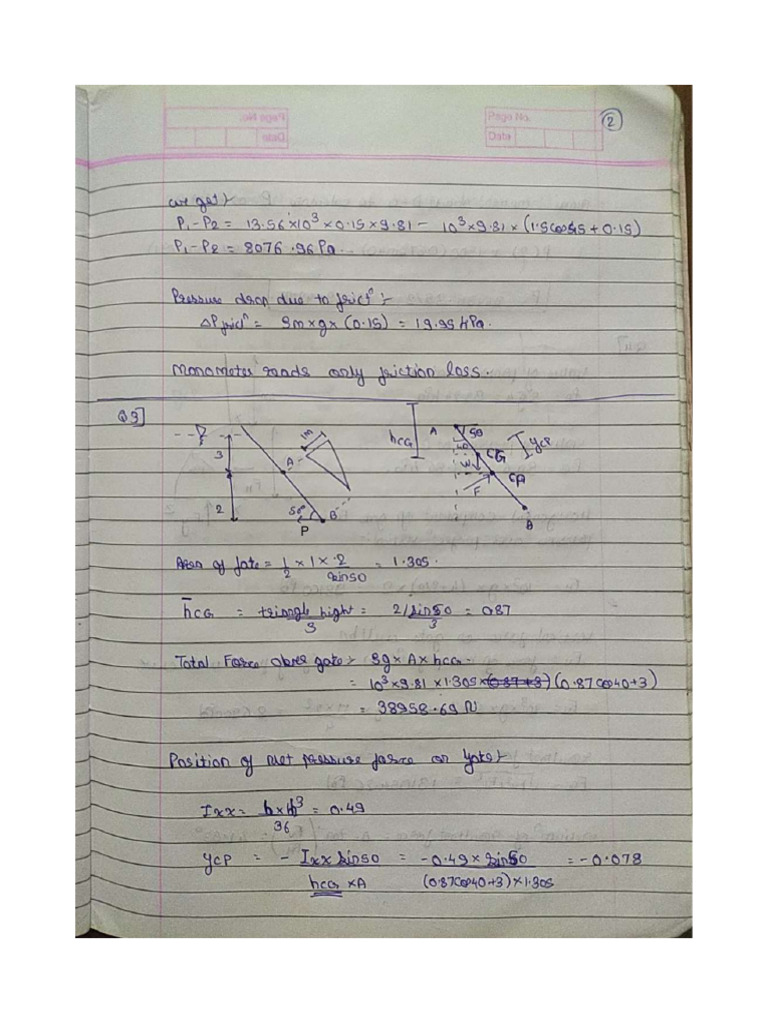 Page No.
Date
Page No.
Date
2
we get⟩
P₁-P₂ = 13.56×10³×0.15×9.81 - 10³×9.81×(1.5cos45+0.15)
P₁-P₂ = 8076.96 Pa.
Pressure drop due to frictⁿ :-
ΔPfrictⁿ = Sm×g×(0.15) = 19.95 kPa.
Manometer reads only friction loss.
Q3]
3
2
A
1m
50°
B
P
hCG
A
50
W
CG
CP
F
yCP
B
Area of gate = 1/2 × 1 × 2/sin50 = 1.305.
h̄CG = triangle hight/3 = 2/sin50/3 = 0.87
Total Force over gate⟩ Sg×A×hCG
= 10³×9.81×1.305×(0.87+3)(0.87cos40+3)
= 38958.69 N
Position of Net pressure force on gate⟩
Ixx = b×h³/36 = 0.49
yCP = - Ixx sin50/hCG×A = -0.49×sin50/(0.87cos40+3)×1.305 = -0.078